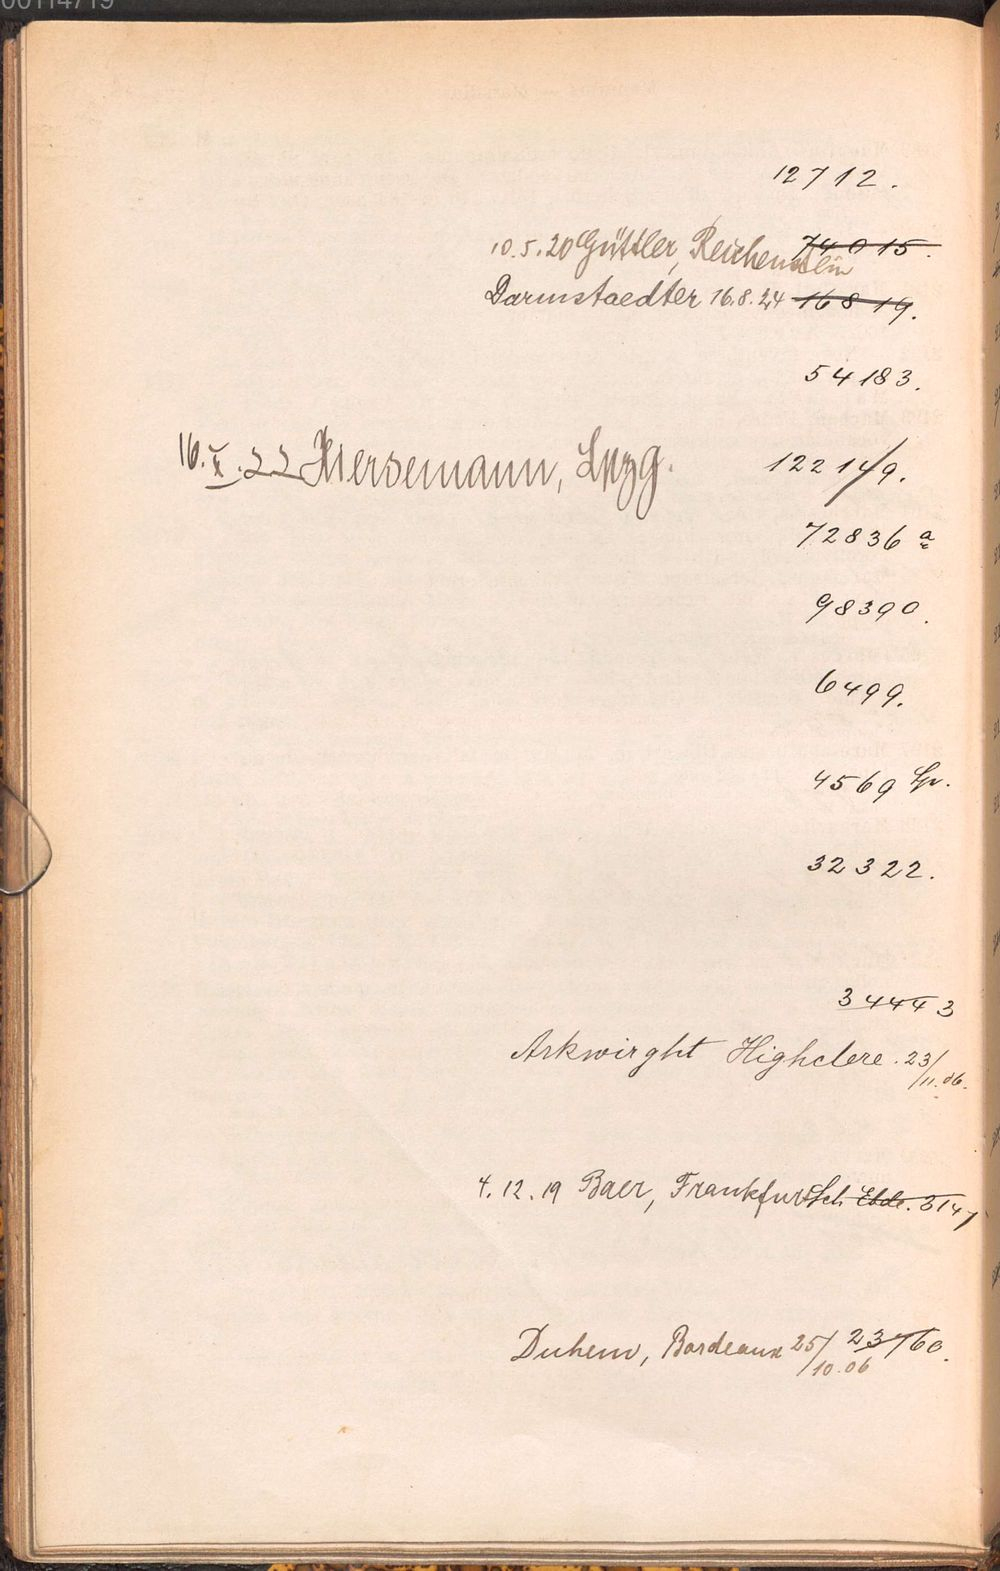 00114719
12712.
10.5.20 Güttler, Reichenstein 74015.
Darmstaedter 16.8.24 16819.
54183.
16.X.22 Hiersemann, Lpzg. 122149.
72836 a
98390.
6499.
4569
32322.
34443
Arkwirght Highclere. 23/11.06.
4.12.19 Baer, Frankfurt
Duhem, Bordeaux 25/10.06 23760.